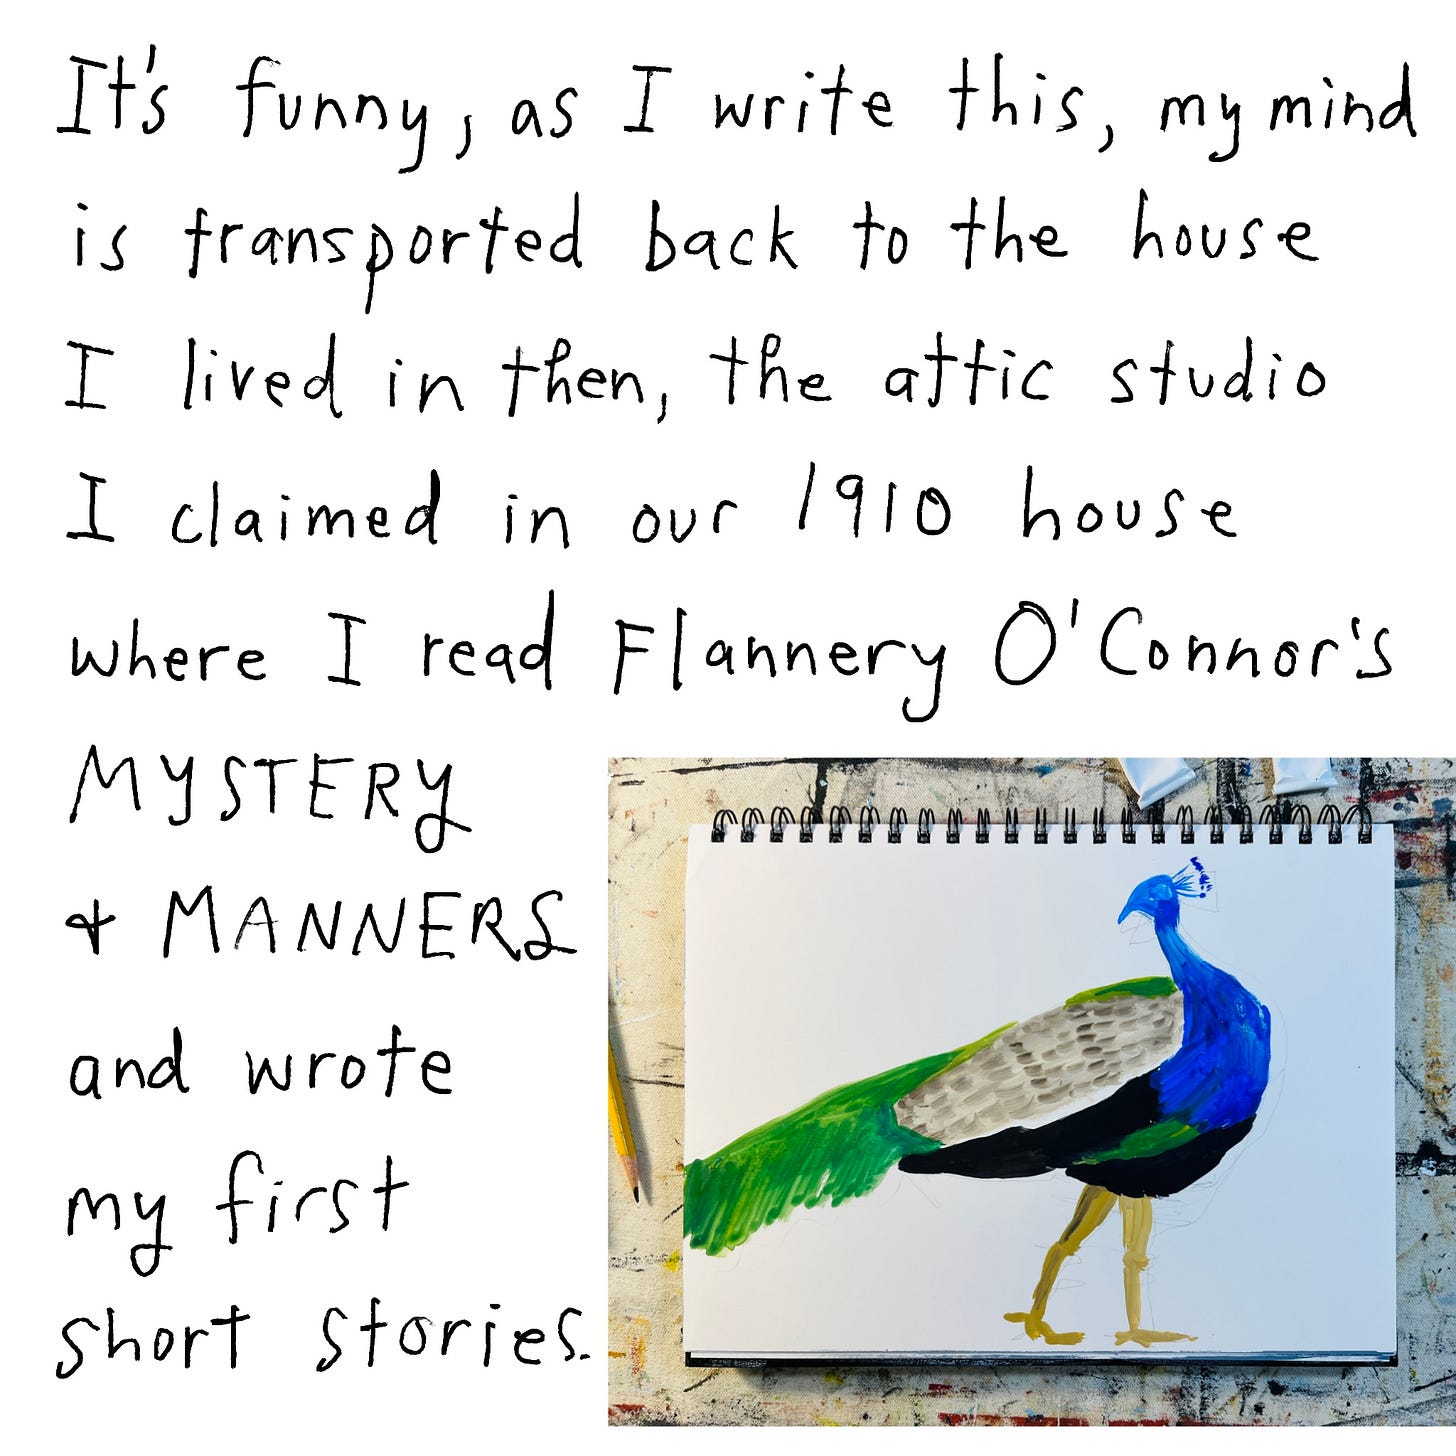 It's funny, as I write this, my mind
is transported back to the house
I lived in then, the attic studio
I claimed in our 1910 house
where I read Flannery O'Connor's
MYSTERY
& MANNERS
and wrote
my first
short stories.